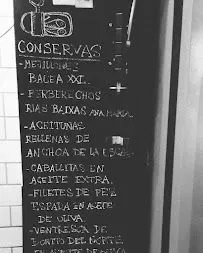 CONSERVAS
- MEJILLONES
BALEA XXL.
- BERBERECHOS
RIAS BAIXAS ANA MARIA.
- ACEITUNAS
RELLENAS DE
ANCHOA DE LA
- CABALLITAS EN
ACEITE EXTRA.
- FILETES DE PEZ
ESPADA EN ACEITE
DE OLIVA.
- VENTRESCA DE
BONITO DEL NORTE
EN ACEITE DE OLIVA